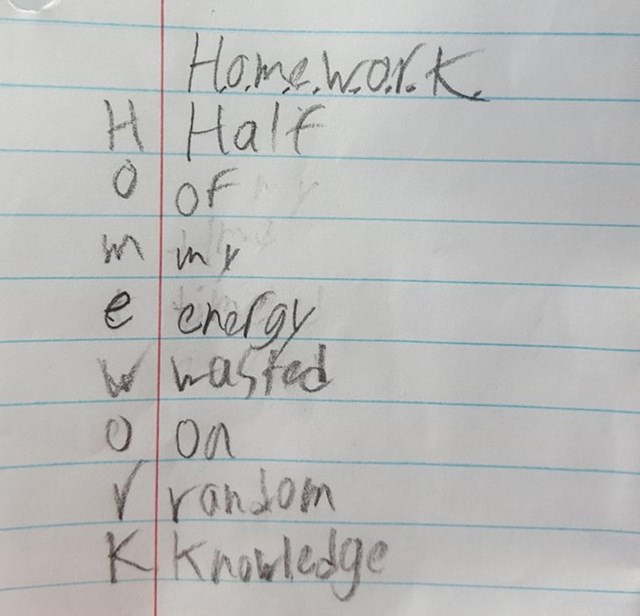 H.o.m.e.w.o.r.k.
H Half
O of
m my
e energy
w wasted
O on
r random
K Knowledge